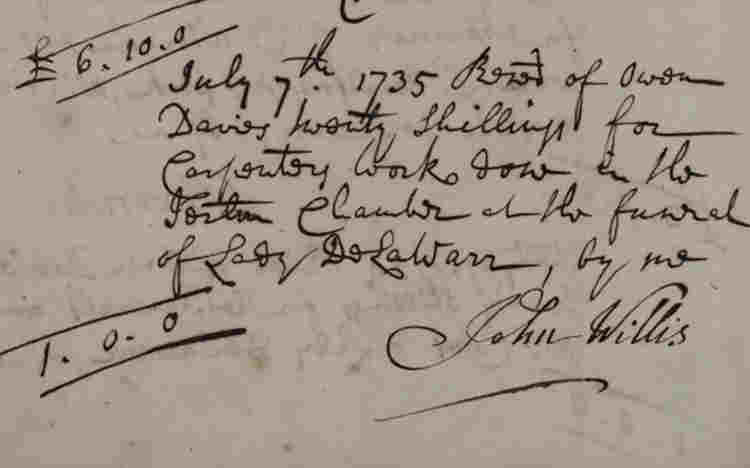 £ 6.10.0
July 7th. 1735 Recd of Owen
Davies twenty Shillings for
Carpenters work done in the
Jerusalem Chamber at the funeral
of Lady DeLaWarr, by me
1.0.0
John Willis